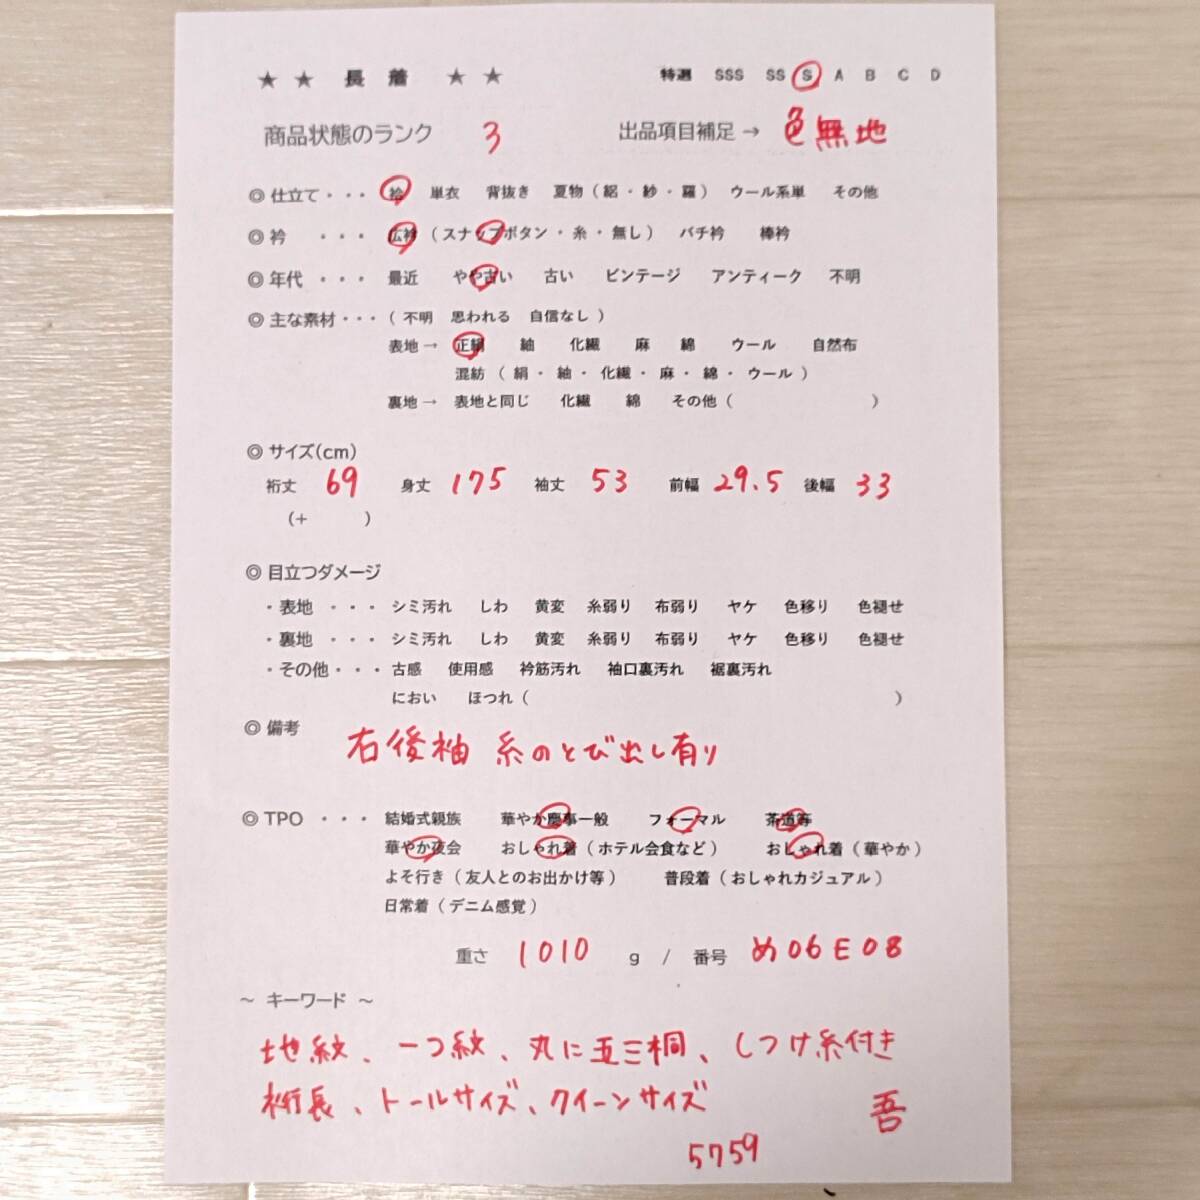 ★ ★ 長 着 ★ ★ 特選 SSS SS S A B C D
商品状態のランク 3 出品項目補足→ 色無地
◎ 仕立て・・・ 袷 単衣 背抜き 夏物（絽・紗・羅） ウール系単 その他
◎ 衿 ・・・ 広衿（スナップボタン・糸・無し） バチ衿 棒衿
◎ 年代 ・・・ 最近 やや古い 古い ビンテージ アンティーク 不明
◎ 主な素材・・・（ 不明 思われる 自信なし ）
表地→ 正絹 紬 化繊 麻 綿 ウール 自然布
混紡（ 絹・ 紬・ 化繊・ 麻・ 綿・ ウール ）
裏地→ 表地と同じ 化繊 綿 その他（ ）
◎ サイズ(cm)
裄丈 69 身丈 175 袖丈 53 前幅 29.5 後幅 33
(+ )
◎ 目立つダメージ
・表地 ・・・ シミ汚れ しわ 黄変 糸弱り 布弱り ヤケ 色移り 色褪せ
・裏地 ・・・ シミ汚れ しわ 黄変 糸弱り 布弱り ヤケ 色移り 色褪せ
・その他・・・ 古感 使用感 衿筋汚れ 袖口裏汚れ 裾裏汚れ
におい ほつれ（ ）
◎ 備考
右後袖 糸のとび出し有り
◎ TPO ・・・ 結婚式親族 華やか慶事一般 フォーマル 茶道等
華やか夜会 おしゃれ着（ホテル会食など） おしゃれ着（華やか）
よそ行き（友人とのお出かけ等） 普段着（おしゃれカジュアル）
日常着（デニム感覚）
重さ 1010 g / 番号 め06E08
～ キーワード ～
地紋、一つ紋、丸に五三桐、しつけ糸付き
裄長、トールサイズ、クイーンサイズ
吾
5759